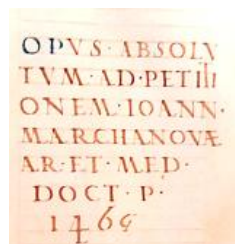 OPVS · ABSOLV
TVM · AD · PETITI
ONEM · IOANN ·
MARCHANOVÆ
AR · ET · MED ·
DOCT · P ·
1465